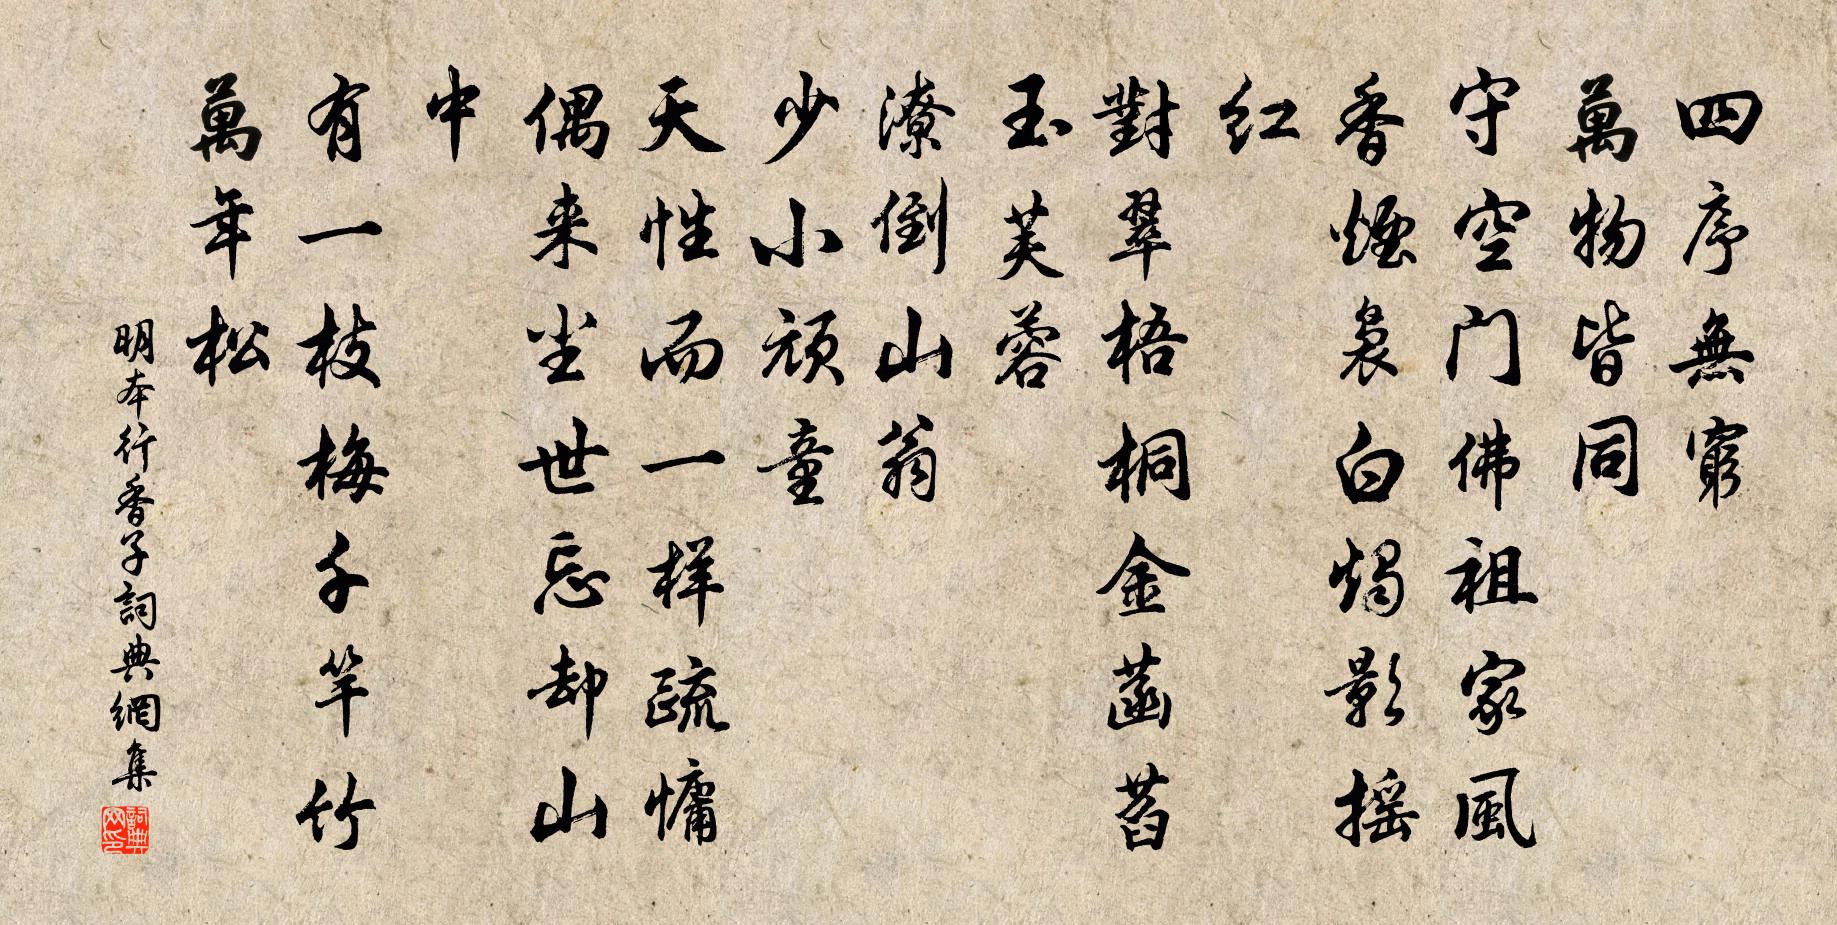 四序無窮
萬物皆同
守空门佛祖家風
香煙裊白燭影摇
红
對翠梧桐金菡萏
玉芙蓉
潦倒山翁
少小頑童
天性而一样疏慵
偶来坐世忘却山
中
有一枝梅千竿竹
萬年松
明本行香子詞典網集
詞典網印